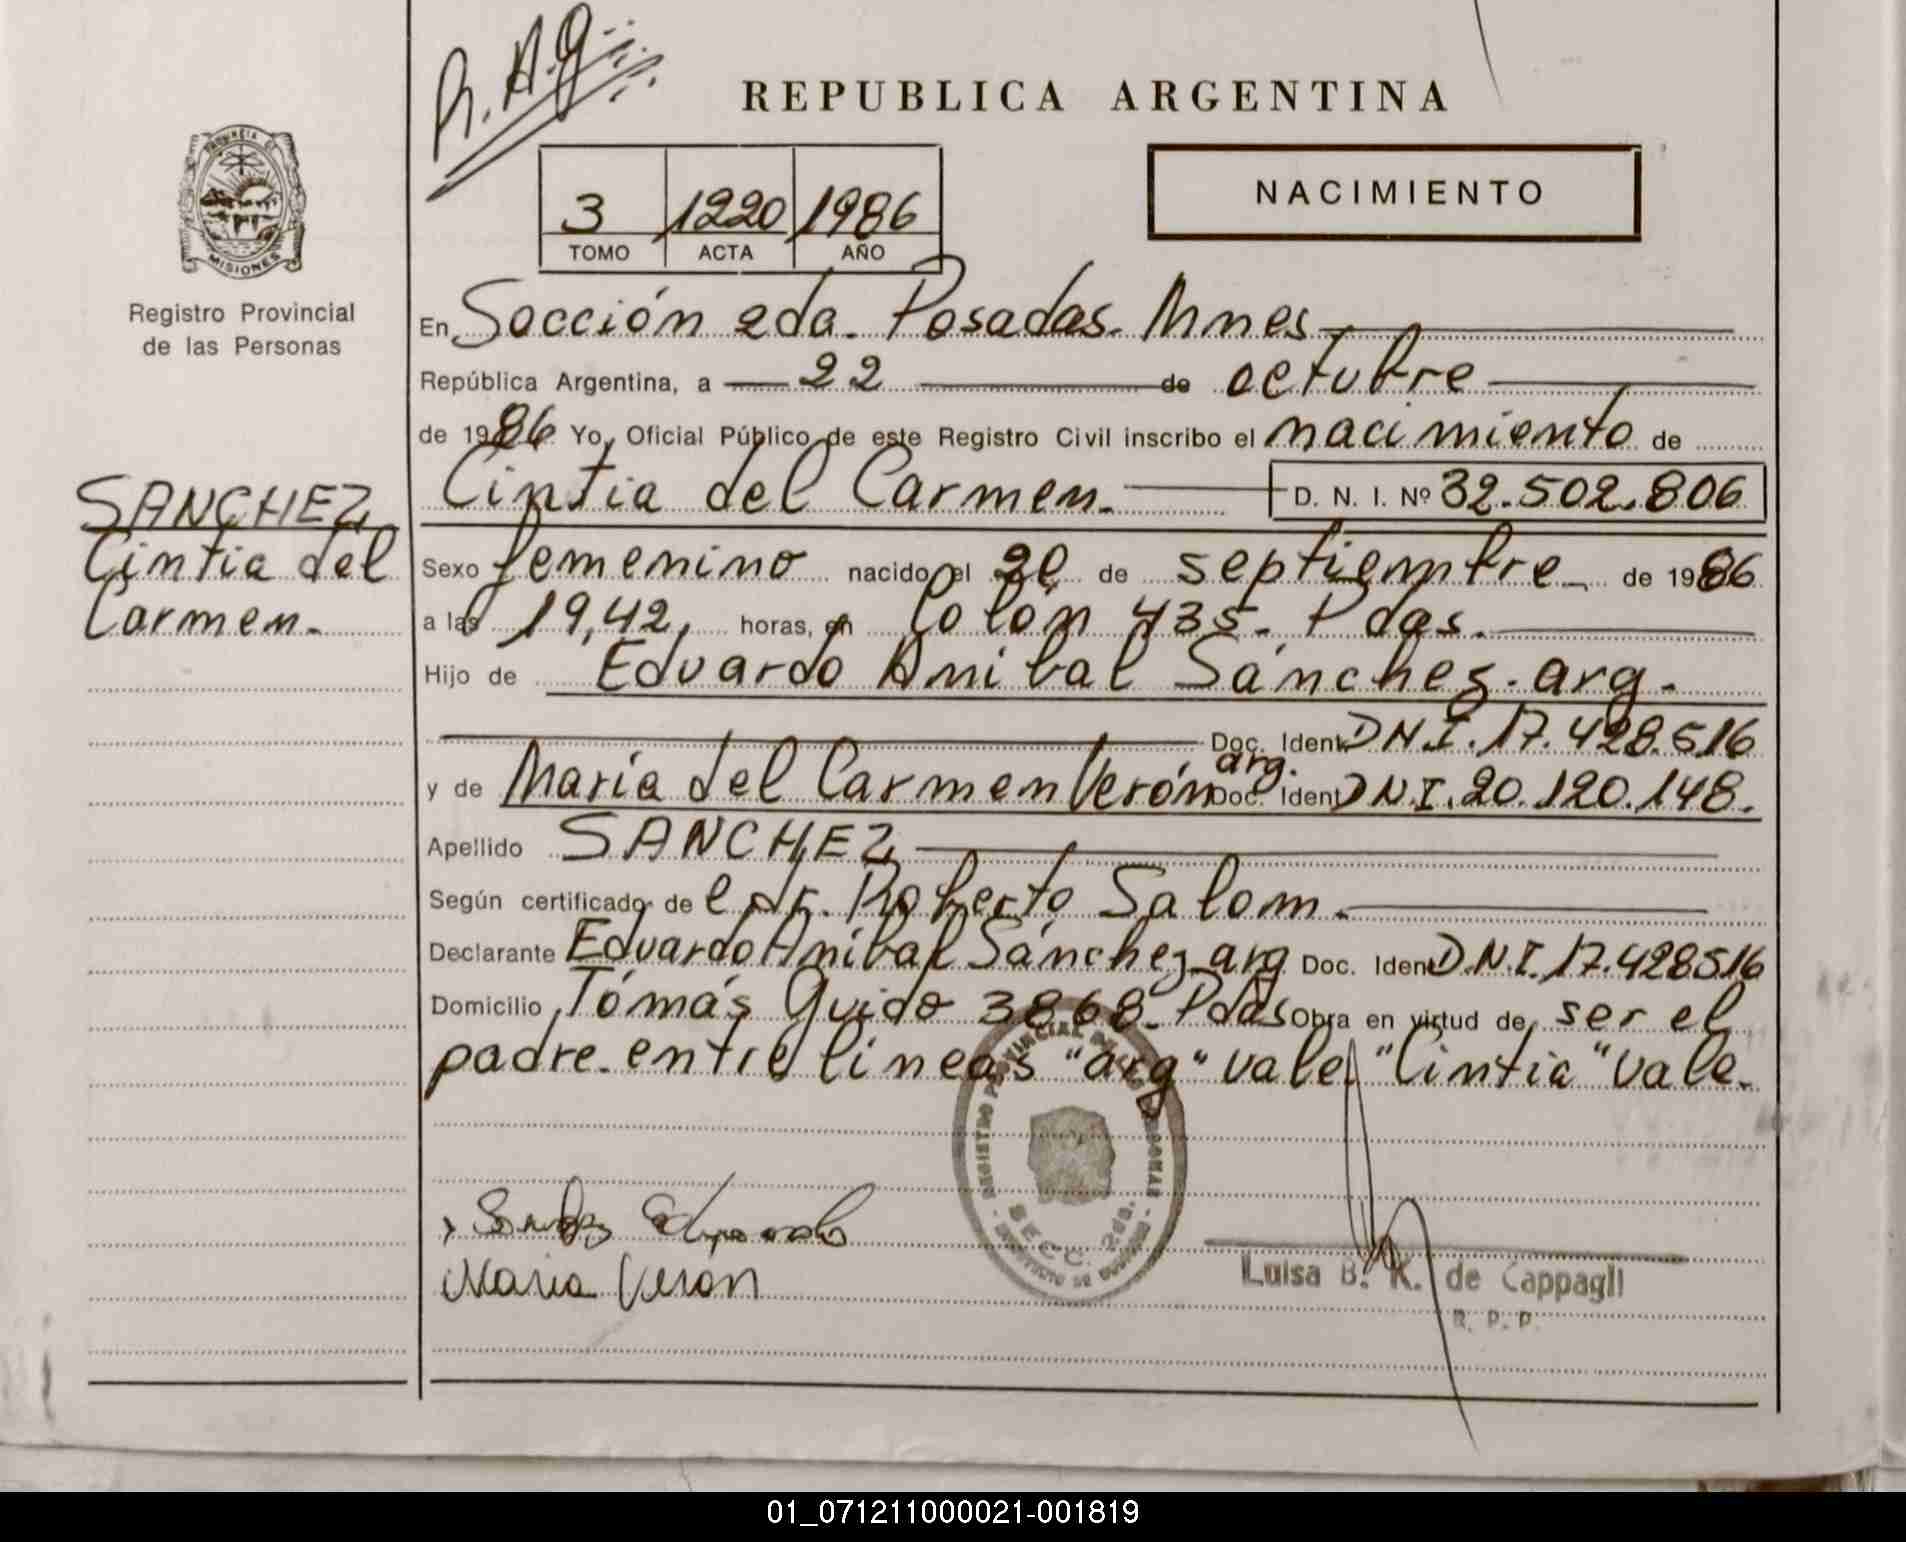 R. A. g.
REPUBLICA ARGENTINA
PROVINCIA DE
MISIONES
Registro Provincial
de las Personas
3 1220 1986
TOMO ACTA AÑO
NACIMIENTO
En Sección 2da. Posadas. Mnes
República Argentina, a 22 de octubre
de 1986 Yo, Oficial Público de este Registro Civil inscribo el nacimiento de
Cintia del Carmen. D. N. I. Nº 32.502.806
SANCHEZ
Cintia del
Carmen.
Sexo femenino nacido el de septiembre de 1986
a las 19,42, horas, en Colón 435. Pdas.
Hijo de Eduardo Anibal Sánchez. arg.
Doc. Ident. D N.I. 17.428.516
arg.
y de María del Carmen Verón Doc. Ident. D N.I. 20.120.148.
Apellido SANCHEZ
Según certificado de l dr. Roberto Salom.
Declarante Eduardo Anibal Sánchez arg Doc. Ident. D.N.I. 17.428516
Domicilio Tomás Guido 3868. Pdas Obra en virtud de ser el
padre. entre lineas "arg" vale. "Cintia" vale.
REGISTRO PROVINCIAL DE LAS PERSONAS
SECC. 2da.
Sanchez Eduardo
Maria Veron
Luisa B. K. de Cappagli
R. P. P.
01_071211000021-001819